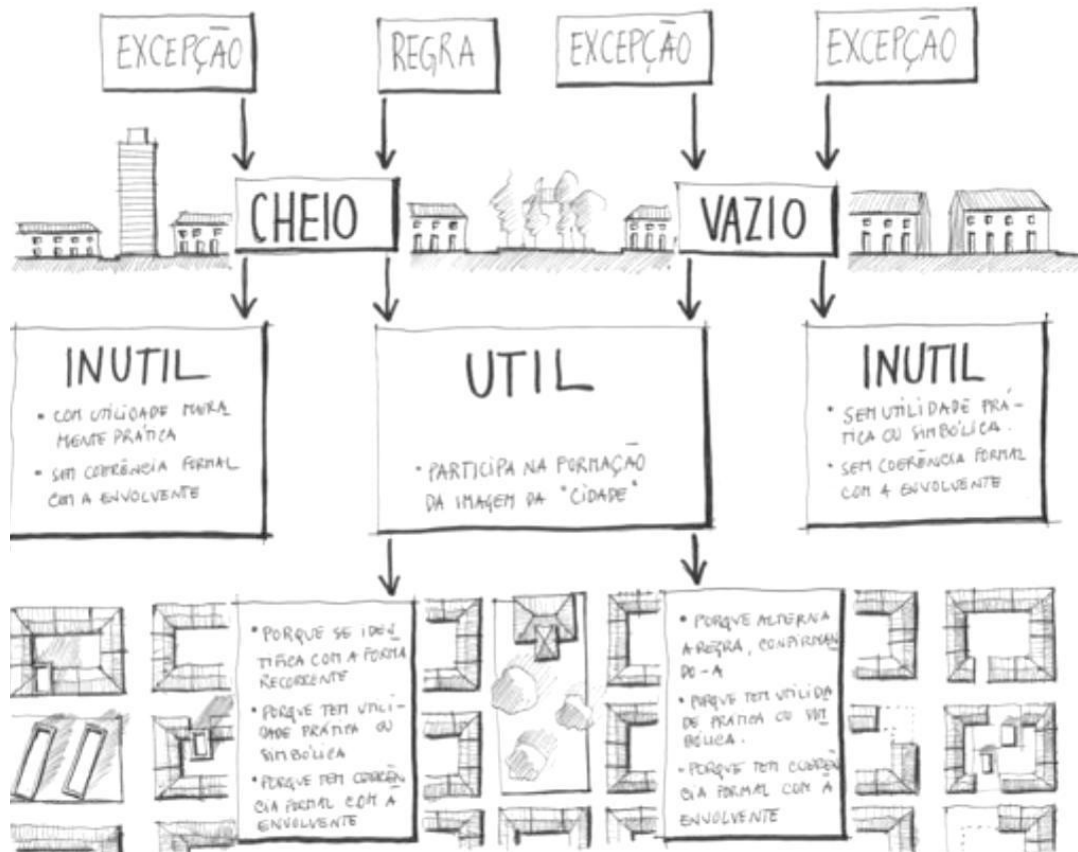 EXCEPÇÃO
REGRA
EXCEPÇÃO
EXCEPÇÃO
CHEIO
VAZIO
INUTIL
• COM UTILIDADE MERA
MENTE PRÁTICA
• SEM COERÊNCIA FORMAL
COM A ENVOLVENTE
UTIL
• PARTICIPA NA FORMAÇÃO
DA IMAGEM DA "CIDADE"
INUTIL
• SEM UTILIDADE PRÁ-
TICA OU SIMBÓLICA.
• SEM COERÊNCIA FORMAL
COM A ENVOLVENTE
• PORQUE SE IDEN
TIFICA COM A FORMA
RECORRENTE
• PORQUE TEM UTILI-
DADE PRÁTICA OU
SIMBÓLICA
• PORQUE TEM COERÊN
CIA FORMAL COM A
ENVOLVENTE
• PORQUE ALTERNA
A REGRA, CONFIRMAN
DO-A
• PORQUE TEM UTILIDA
DE PRÁTICA OU SIM
BÓLICA.
• PORQUE TEM COERÊN
CIA FORMAL COM A
ENVOLVENTE